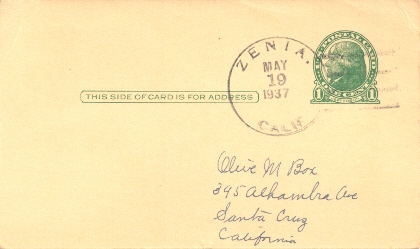 ZENIA.
MAY
19
1937
CALIF.
U.S. POSTAL CARD
1 1
THIS SIDE OF CARD IS FOR ADDRESS
Olive M Box
345 Alhambra Ave
Santa Cruz
California